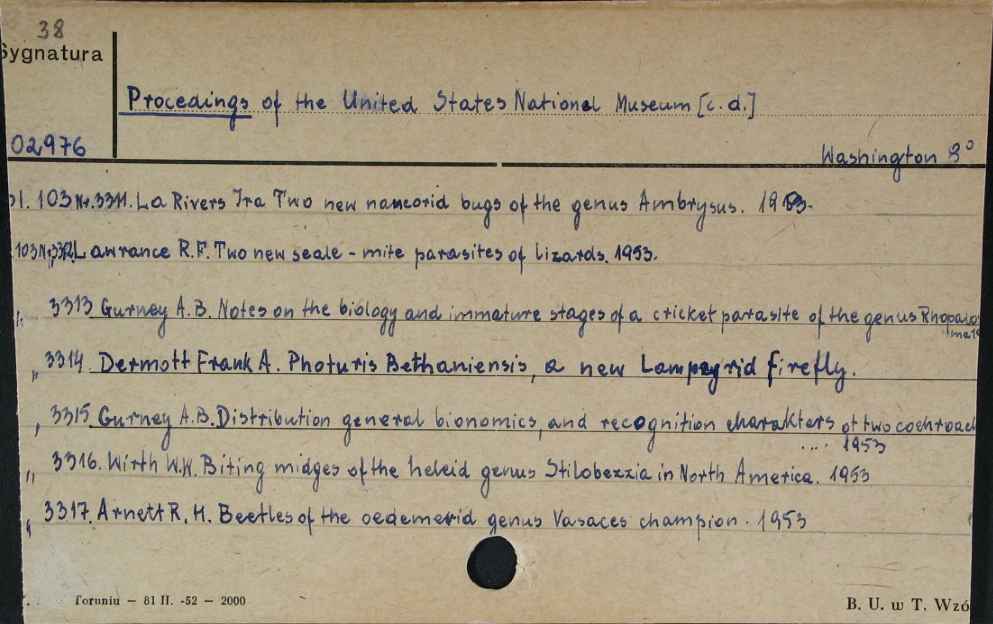 38
Sygnatura
Procedings of the United States National Museum [c.d.]
02976
Washington 8°
ol. 103 Nr. 3311. La Rivers Ira Two new naucorid bugs of the genus Ambrysus. 1953.
103 Nr 3312 Lawrance R.F. Two new seale - mite parasites of lizards. 1953.
" 3313 Gurney A.B. Notes on the biology and immature stages of a cricket parasite of the genus Rhopalo
me
" 3314. Dermott Frank A. Photuris Bethaniensis, a new Lampyrid firefly.
" 3315. Gurney A.B. Distribution general bionomics, and recognition charakters of two cochroach
.... 1953
" 3316. Wirth W.W. Biting midges of the heleid genus Stilobezzia in North America. 1953
" 3317. Arnett R. H. Beetles of the oedemerid genus Vasaces champion. 1953
Toruniu — 81 II. -52 — 2000
B. U. w T. Wzó